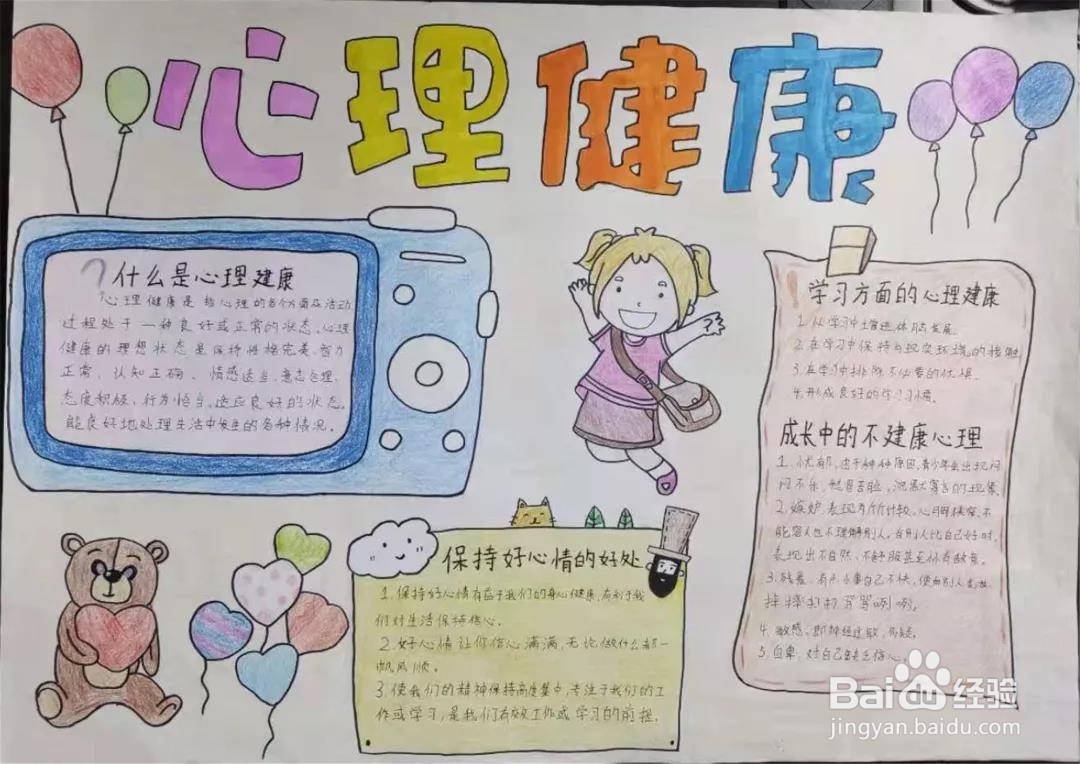 心理健康
什么是心理建康
心理健康是指心理的各个方面及活动
过程处于一种良好或正常的状态。心理
健康的理想状态是保持性格完美、智力
正常、认知正确、情感适当、意志合理、
态度积极、行为恰当、适应良好的状态。
能良好地处理生活中发生的各种情况。
学习方面的心理建康
1.从学习中增进体脑发展。
2.在学习中保持与现实环境的接触。
3.在学习中排除不必要的忧惧。
4.形成良好的学习习惯。
成长中的不建康心理
1.小忧郁,由于种种原因,青少年会出现闷
闷不乐、愁眉苦脸,沉默寡言的现象。
2.嫉妒,表现为斤斤计较,心胸狭窄,不
能容人也不理解别人,当别人比自己好时,
表现出不自然、不舒服甚至怀有敌意。
3.残羞,有点小事自己不快,便向别人
摔摔打打骂骂咧咧。
4.敏感,即神经过敏,多疑。
5.自卑,对自己缺乏信心。
保持好心情的好处
1.保持好心情有益于我们的身心健康,有利于我
们对生活保持信心。
2.好心情让你信心满满,无论做什么都一
帆风顺。
3.使我们的精神保持高度集中,专注于我们的工
作或学习,是我们有效工作或学习的前提。
Baidu经验
jingyan.baidu.com